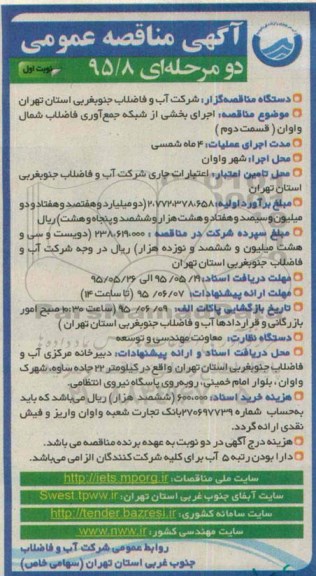 آگهی مناقصه عمومی
دو مرحله‌ای ۹۵/۸
نوبت اول
دستگاه مناقصه‌گزار: شرکت آب و فاضلاب جنوبغربی استان تهران
موضوع مناقصه: اجرای بخشی از شبکه جمع‌آوری فاضلاب شمال
واوان ( قسمت دوم )
مدت اجرای عملیات: ۴ ماه شمسی
محل اجرا: شهر واوان
محل تامین اعتبار: اعتبارات جاری شرکت آب و فاضلاب جنوبغربی
استان تهران
مبلغ برآورد اولیه: ۲،۷۷۲،۳۷۸،۶۵۸ (دو میلیارد و هفتصد و هفتاد و دو
میلیون و سیصد و هفتاد و هشت هزار و ششصد و پنجاه و هشت) ریال
مبلغ سپرده شرکت در مناقصه : ۲۳۸،۶۱۹،۰۰۰ (دویست و سی و
هشت میلیون و ششصد و نوزده هزار) ریال در وجه شرکت آب و
فاضلاب جنوبغربی استان تهران
مهلت دریافت اسناد: ۹۵/۰۵/۱۹ الی ۹۵/۰۵/۲۶
مهلت ارائه پیشنهادات: ۹۵/۰۶/۰۷ (تا ساعت ۱۴)
تاریخ بازگشایی پاکات الف: ۹۵/۰۶/۰۹ (ساعت ۱۰:۳۰ صبح امور
بازرگانی و قراردادها آب و فاضلاب جنوبغربی استان تهران )
دستگاه نظارت: معاونت مهندسی و توسعه
محل دریافت اسناد و ارائه پیشنهادات: دبیرخانه مرکزی آب و
فاضلاب جنوبغربی استان تهران واقع در کیلومتر ۲۲ جاده ساوه، شهرک
واوان ، بلوار امام خمینی، روبه‌روی پاسگاه نیروی انتظامی.
هزینه خرید اسناد: ۶۰۰،۰۰۰ (ششصد هزار) ریال می‌باشد که باید
به‌حساب شماره ۲۷۰۶۹۷۷۳۹ بانک تجارت شعبه واوان واریز و فیش
نقدی ارائه گردد.
هزینه درج آگهی در دو نوبت به عهده برنده مناقصه می باشد.
دارا بودن رتبه ۵ آب برای کلیه شرکت کنندگان الزامی می‌باشد.
سایت ملی مناقصات: http://iets.mporg.ir
سایت آبفای جنوب غربی استان تهران: Swest.tpww.ir
سایت سامانه کشوری: http://tender.bazresi.ir
سایت مهندسی کشور: www.nww.ir
روابط عمومی شرکت آب و فاضلاب
جنوب غربی استان تهران (سهامی خاص)